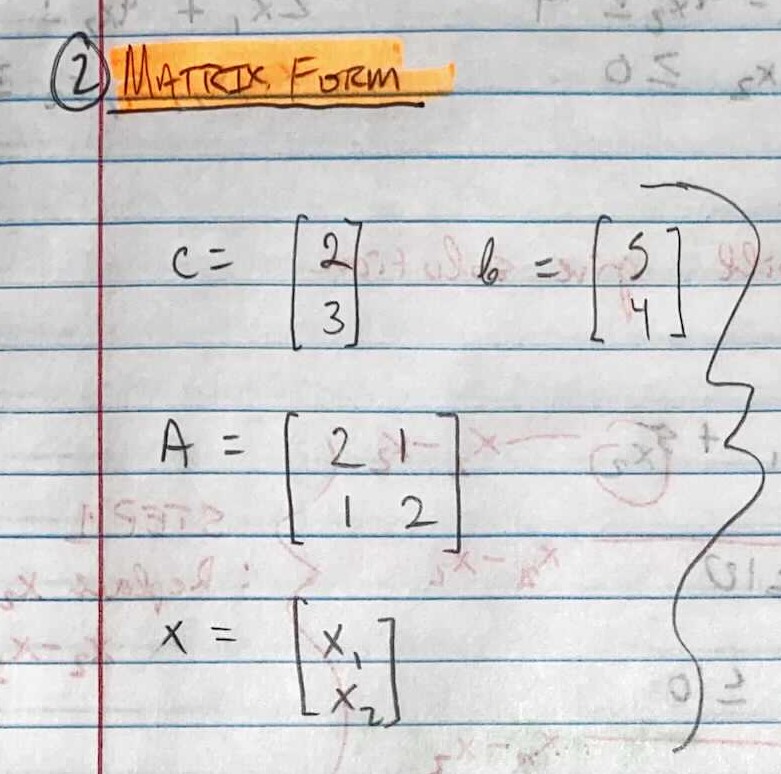 ② MATRIX FORM
c = [2 3] b = [5 4]
A = [2 1
1 2]
x = [x₁
x₂]